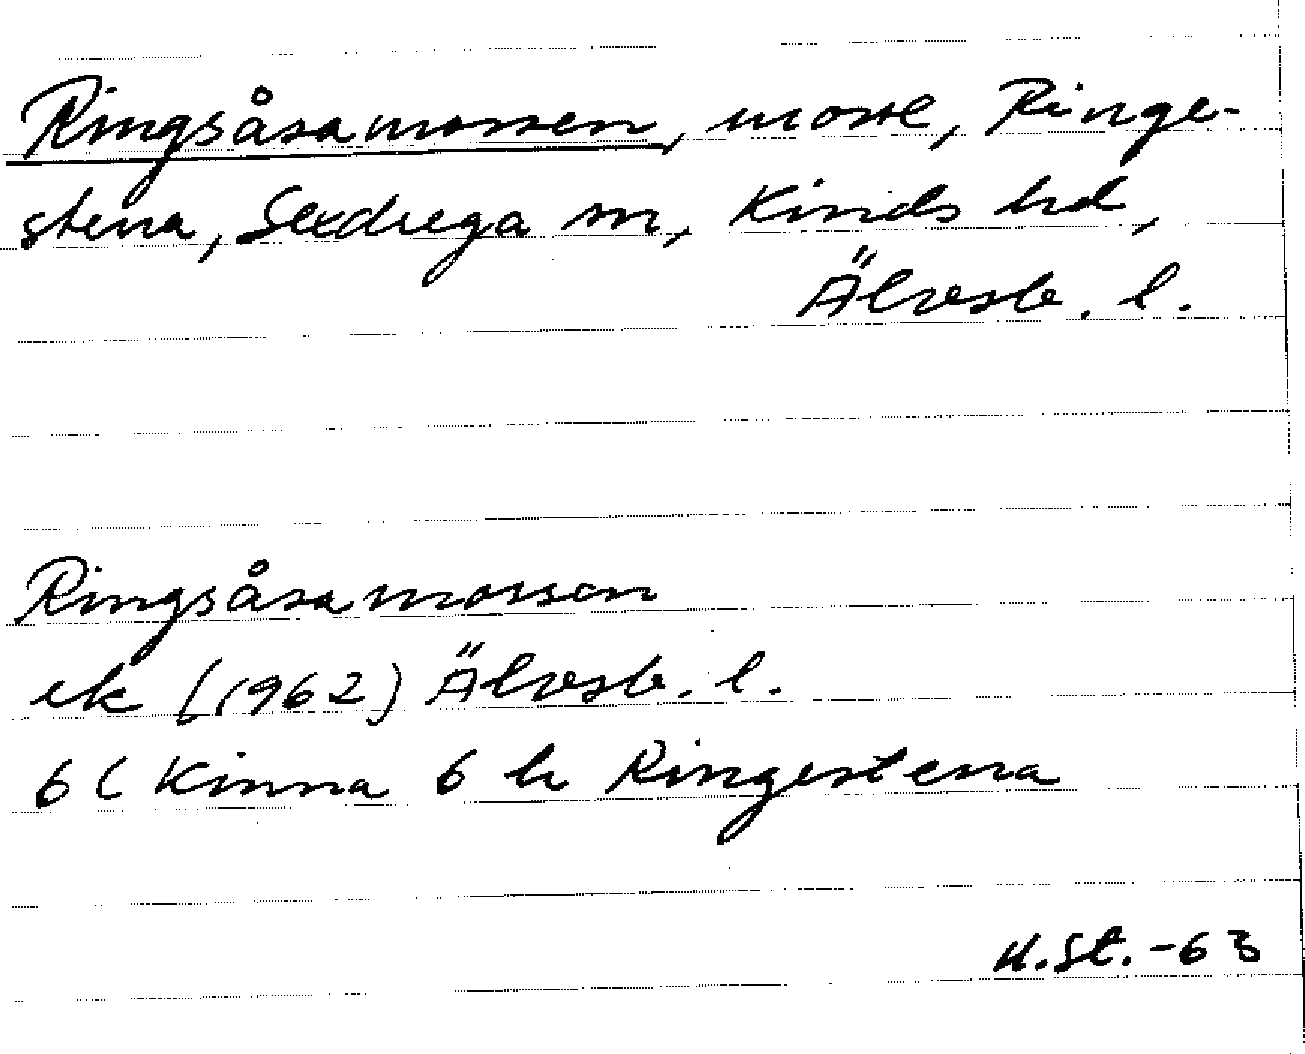 Ringsåsamossen, mosse, Ringe-
stena, Sexdrega sn, Kinds hd,
Älvsb. l.
Ringsåsamossen
ek (1962) Älvsb. l.
6C Kinna 6 h Ringestena
H.St. -63